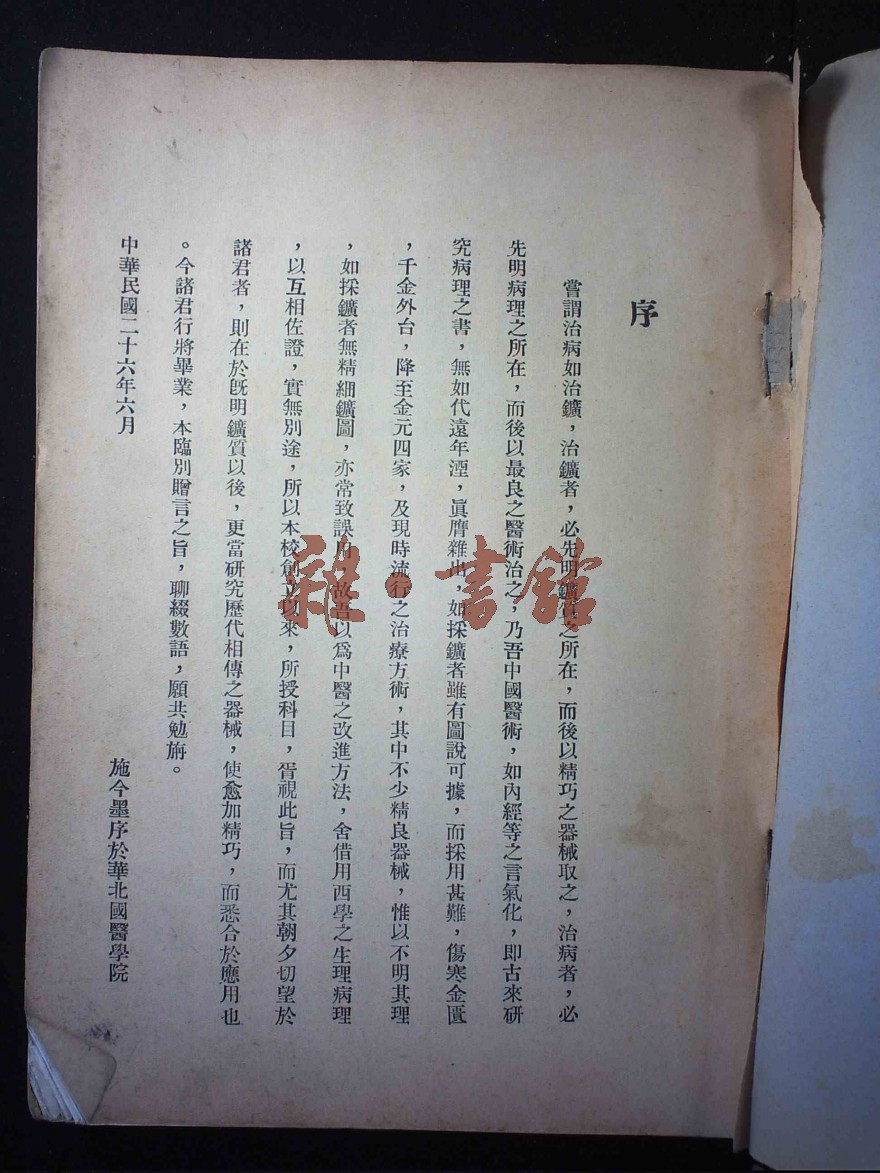 序
嘗謂治病如治鑛，治鑛者，必先明鑛質之所在，而後以精巧之器械取之，治病者，必
先明病理之所在，而後以最良之醫術治之，乃吾中國醫術，如內經等之言氣化，即古來研
究病理之書，無如代遠年湮，眞膺雜出，如採鑛者雖有圖說可據，而採用甚難，傷寒金匱
，千金外台，降至金元四家，及現時流行之治療方術，其中不少精良器械，惟以不明其理
，如採鑛者無精細鑛圖，亦常致誤用，故吾以爲中醫之改進方法，舍借用西學之生理病理
，以互相佐證，實無別途，所以本校創立以來，所授科目，胥視此旨，而尤其朝夕切望於
諸君者，則在於旣明鑛質以後，更當研究歷代相傳之器械，使愈加精巧，而悉合於應用也
。今諸君行將畢業，本臨別贈言之旨，聊綴數語，願共勉旃。
中華民國二十六年六月
施今墨序於華北國醫學院
雜·書館